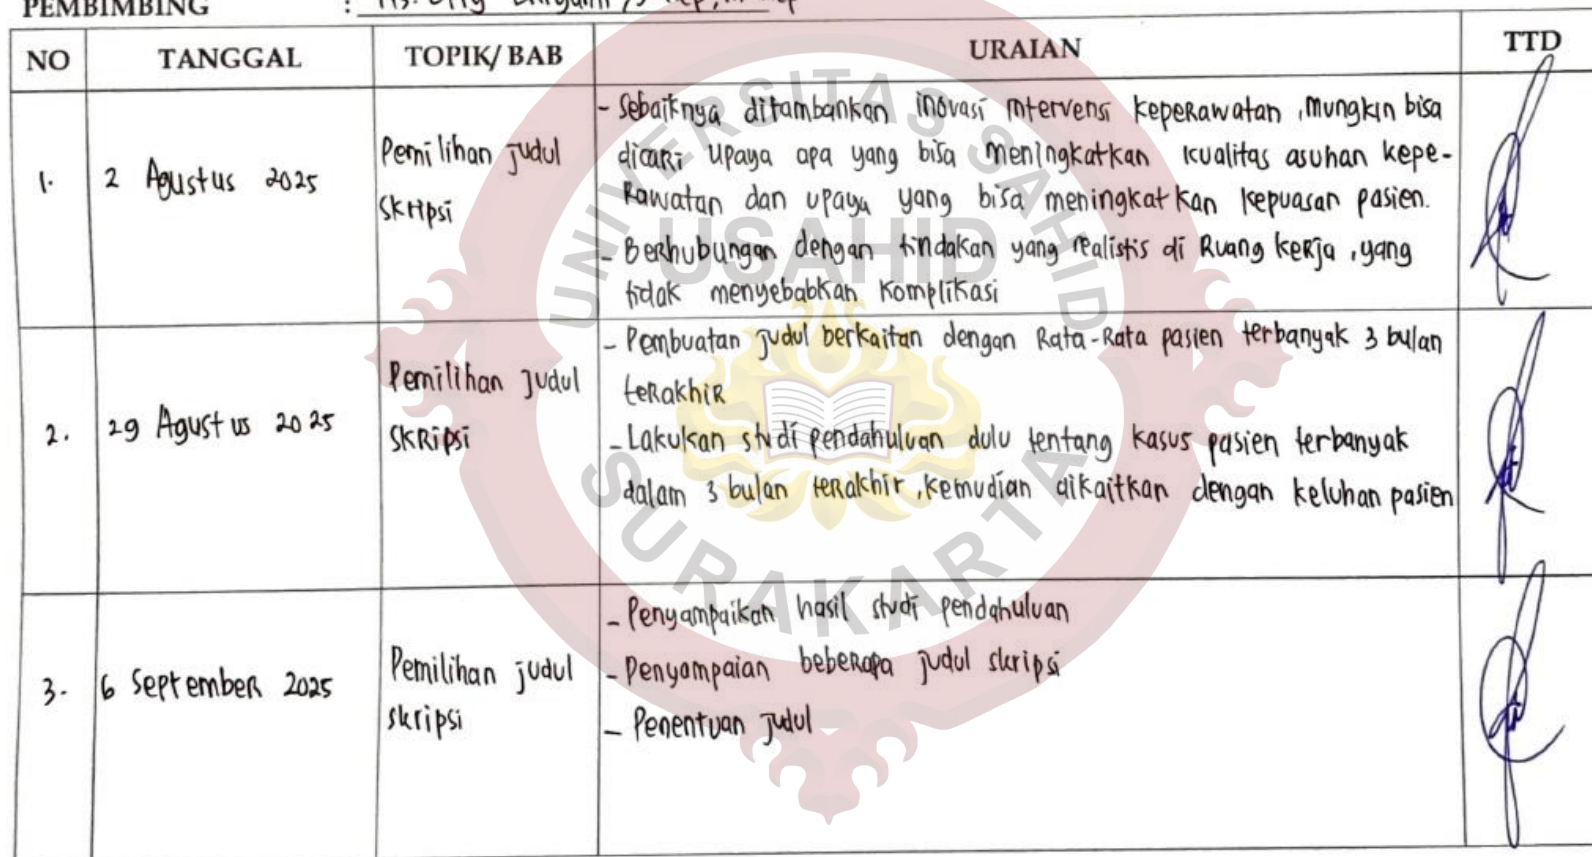 PEMBIMBING : Ns.
NO TANGGAL TOPIK/ BAB URAIAN TTD
1. 2 Agustus 2025
Pemilihan judul
skripsi
- Sebaiknya ditambahkan inovasi intervensi keperawatan, mungkin bisa
dicari upaya apa yang bisa meningkatkan kualitas asuhan kepe-
rawatan dan upaya yang bisa meningkatkan kepuasan pasien.
- Berhubungan dengan tindakan yang realistis di Ruang kerja, yang
tidak menyebabkan komplikasi
2. 29 Agustus 2025
Pemilihan judul
skripsi
- Pembuatan judul berkaitan dengan Rata-Rata pasien terbanyak 3 bulan
terakhir
- Lakukan studi pendahuluan dulu tentang kasus pasien terbanyak
dalam 3 bulan terakhir, kemudian dikaitkan dengan keluhan pasien
3. 6 September 2025
Pemilihan judul
skripsi
- Penyampaikan hasil studi pendahuluan
- Penyampaian beberapa judul skripsi
- Penentuan judul
UNIVERSITAS SAHID
USAHID
SURAKARTA